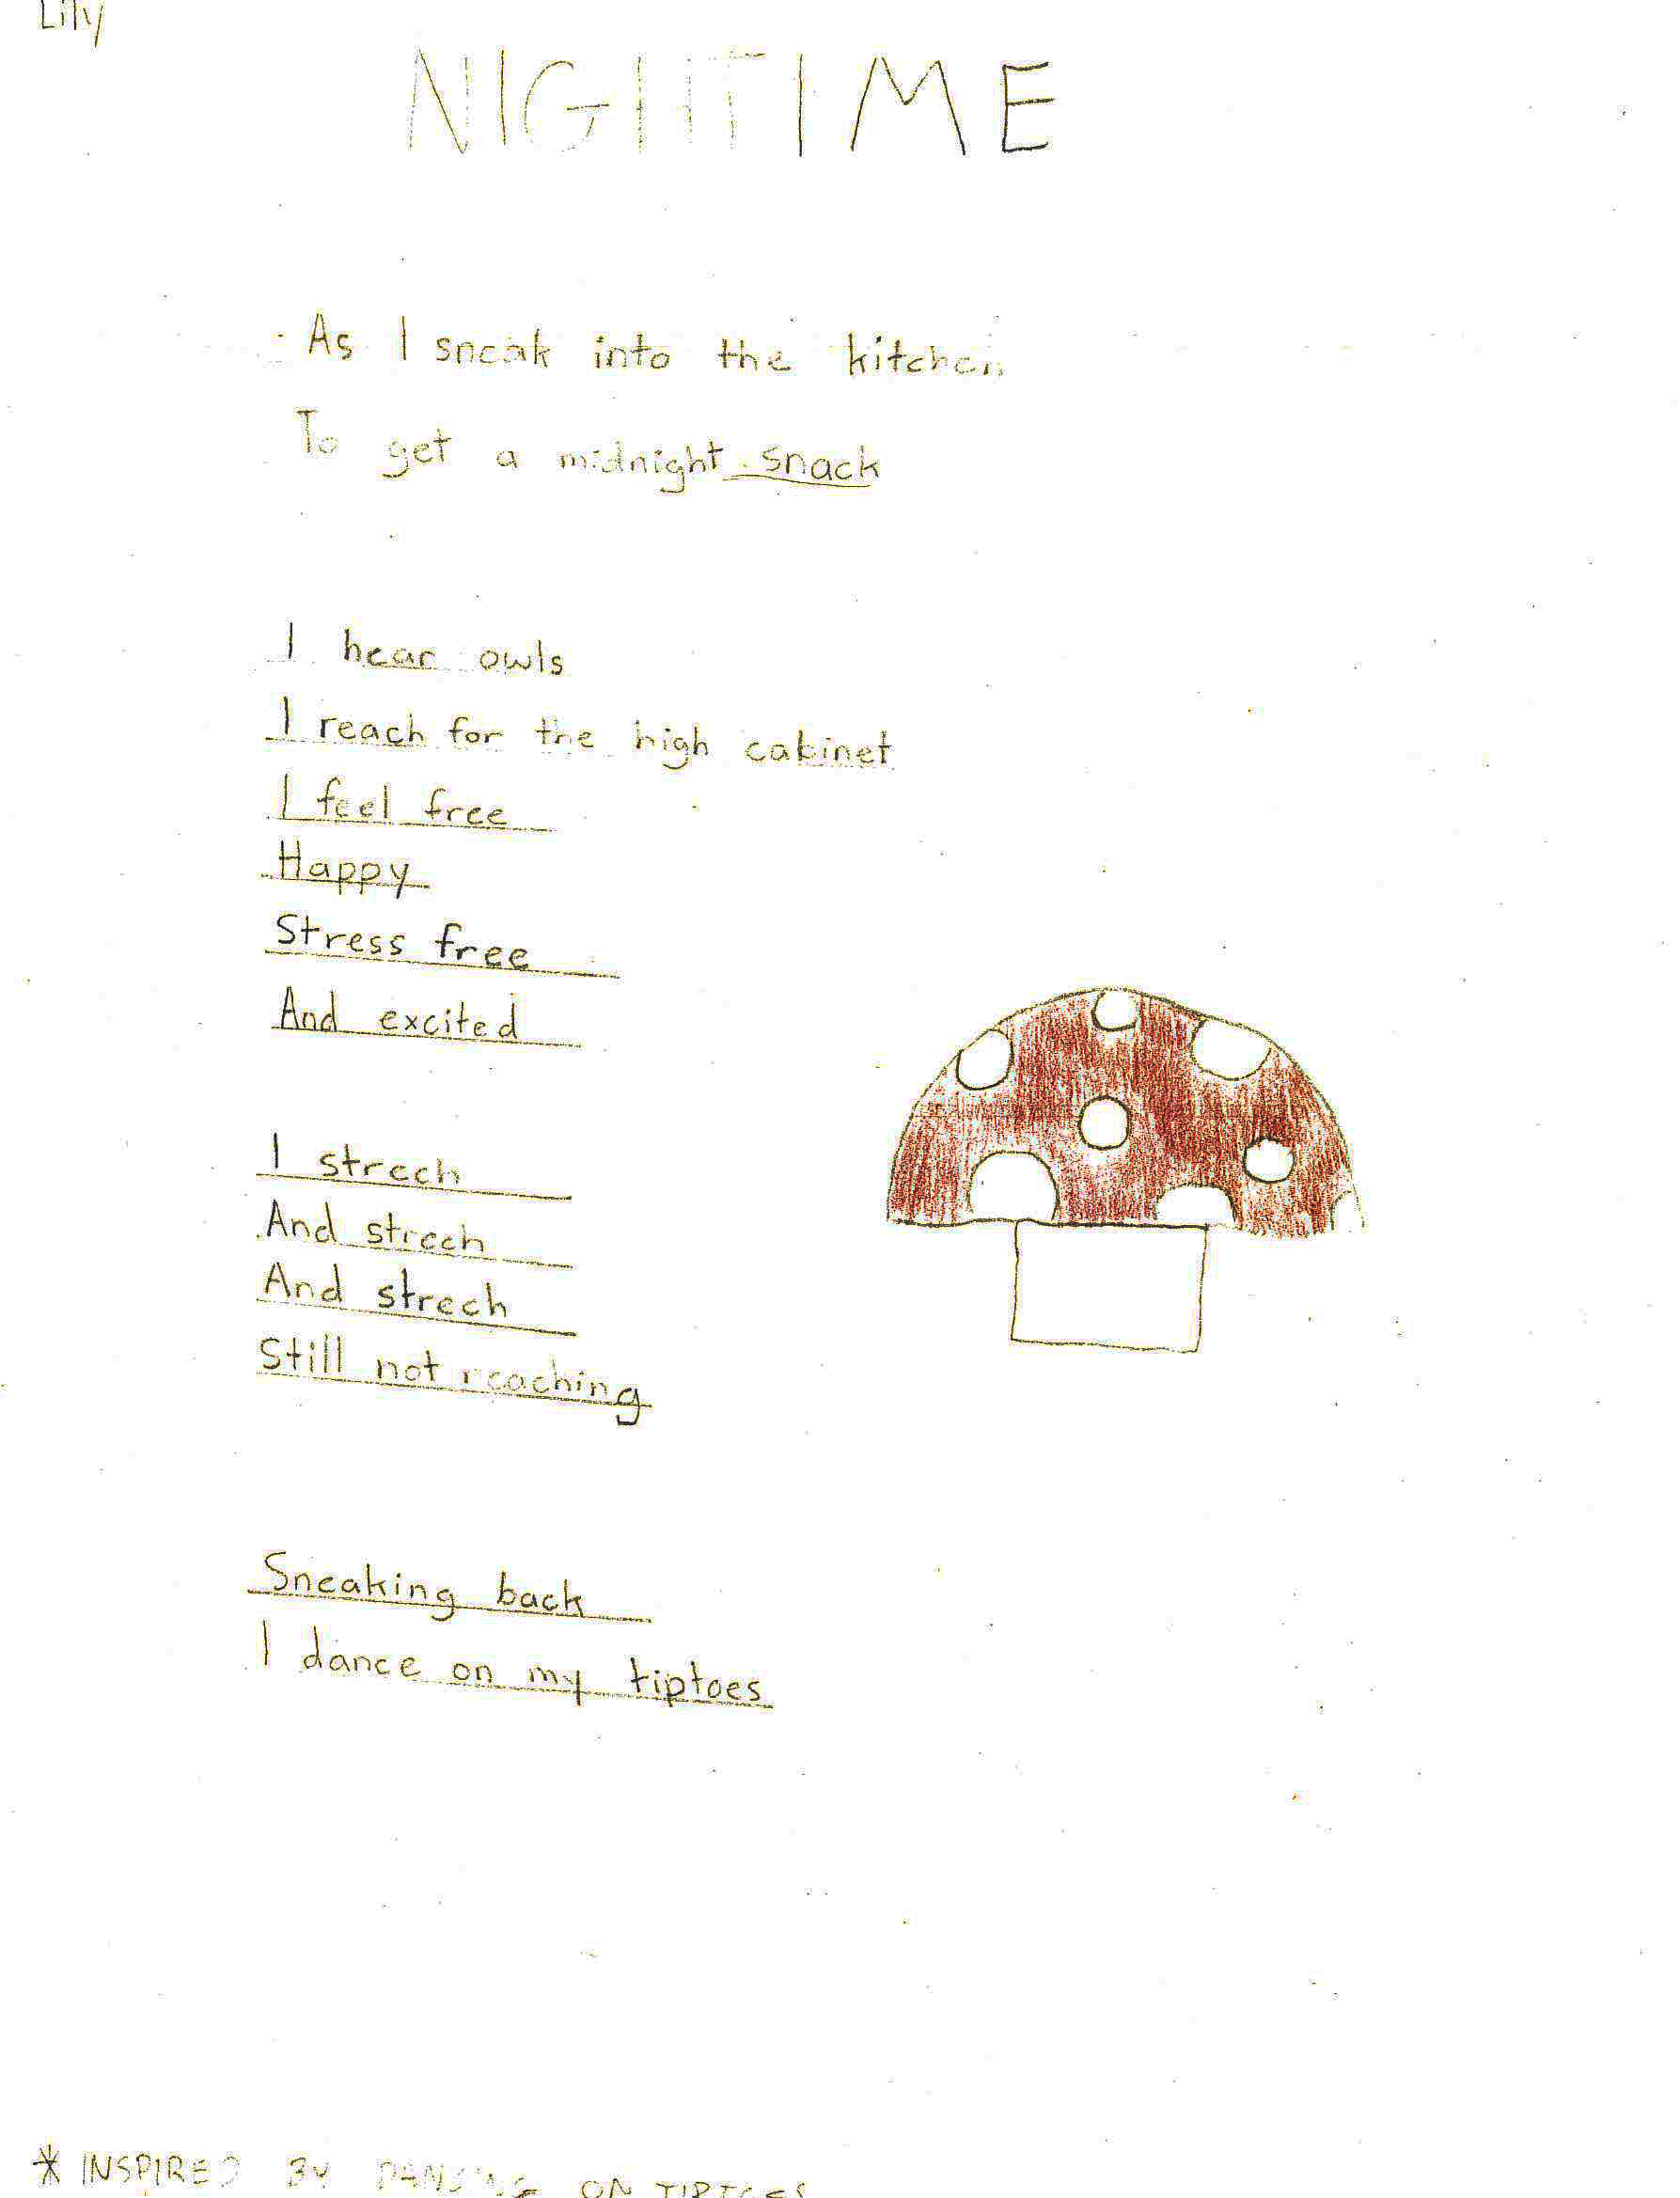 Lily
NIGHTIME
As I sneak into the kitchen
To get a midnight snack
I hear owls
I reach for the high cabinet
I feel free
Happy
Stress free
And excited
I strech
And strech
And strech
Still not reaching
Sneaking back
I dance on my tiptoes
* INSPIRED BY DANCING ON TIPTOES